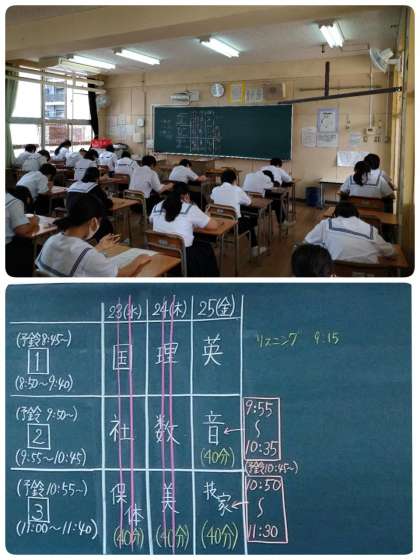 23(水) 24(木) 25(金)
(予鈴8:45〜)
1
(8:50〜9:40)
国 理 英
リスニング 9:15
(予鈴 9:50〜)
2
(9:55〜10:45)
社 数 音
(40分)
9:55
〜
10:35
(予鈴10:45〜)
(予鈴10:55〜)
3
(11:00〜11:40)
保体 美 技家
(40分) (40分) (40分)
10:50
〜
11:30